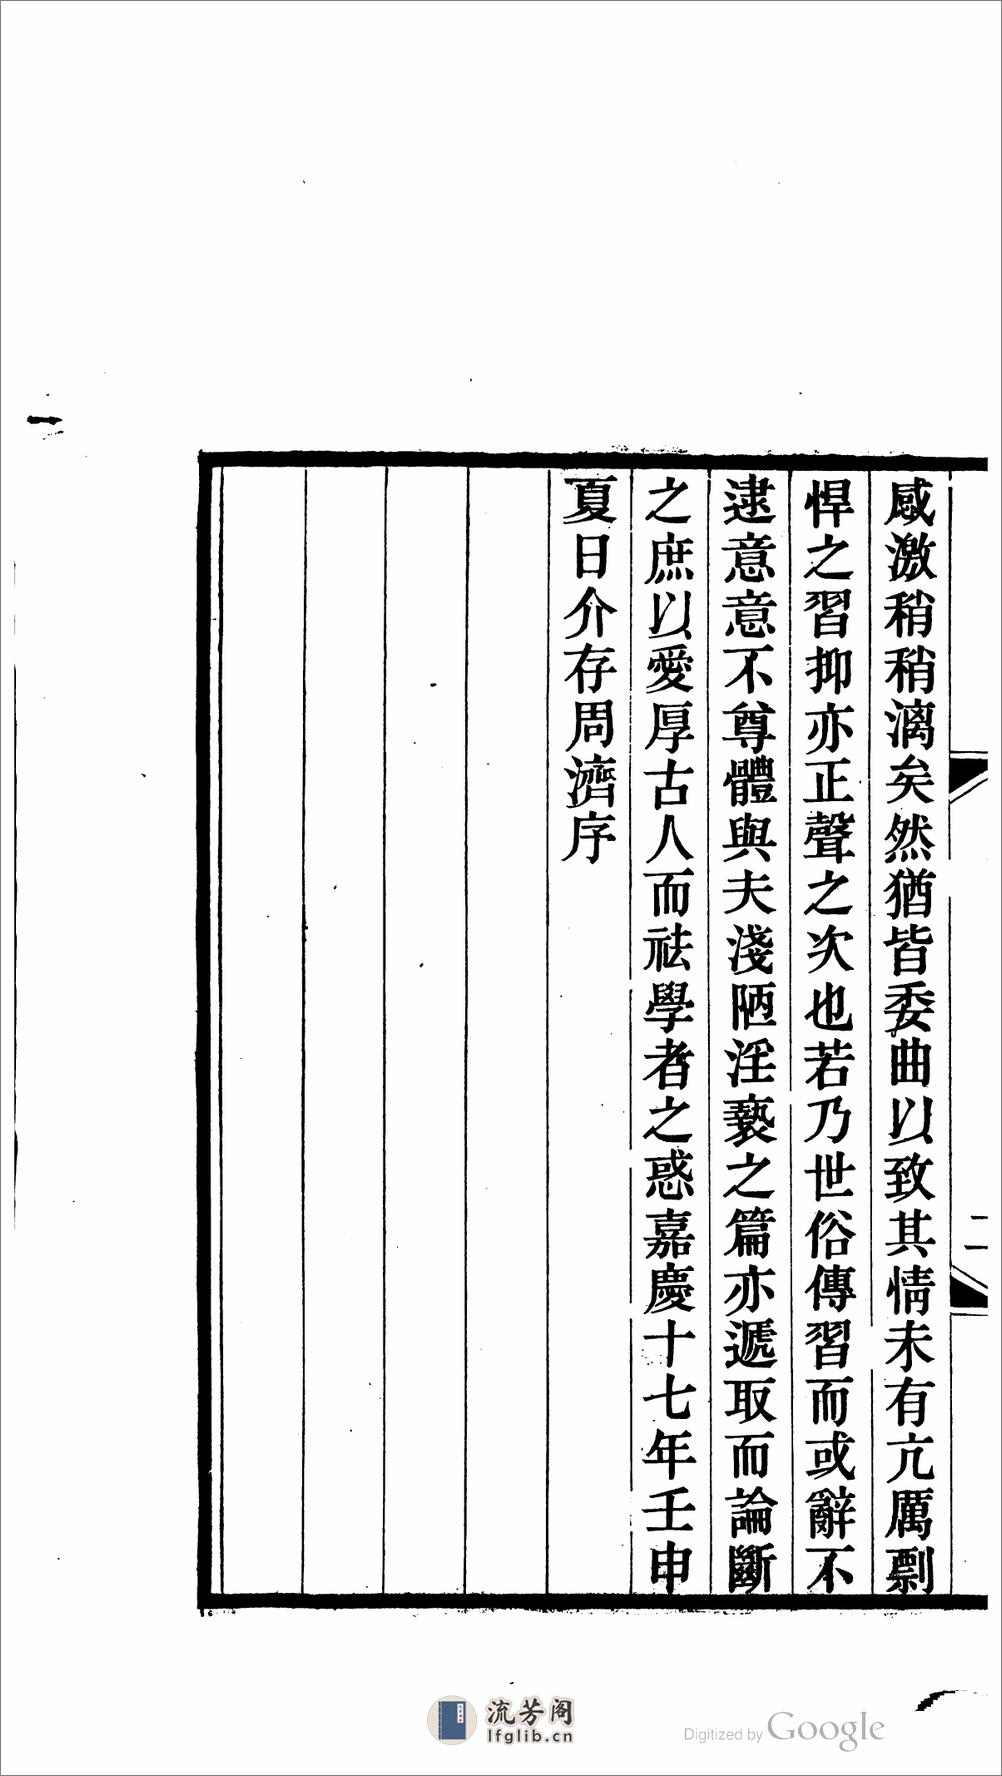 感激稍稍漓矣然猶皆委曲以致其情未有亢厲剽
悍之習抑亦正聲之次也若乃世俗傳習而或辭不
逮意意不尊體與夫淺陋淫褻之篇亦遞取而論斷
之庶以愛厚古人而祛學者之惑嘉慶十七年壬申
夏日介存周濟序
二
流芳阁
lfglib.cn
Digitized by Google